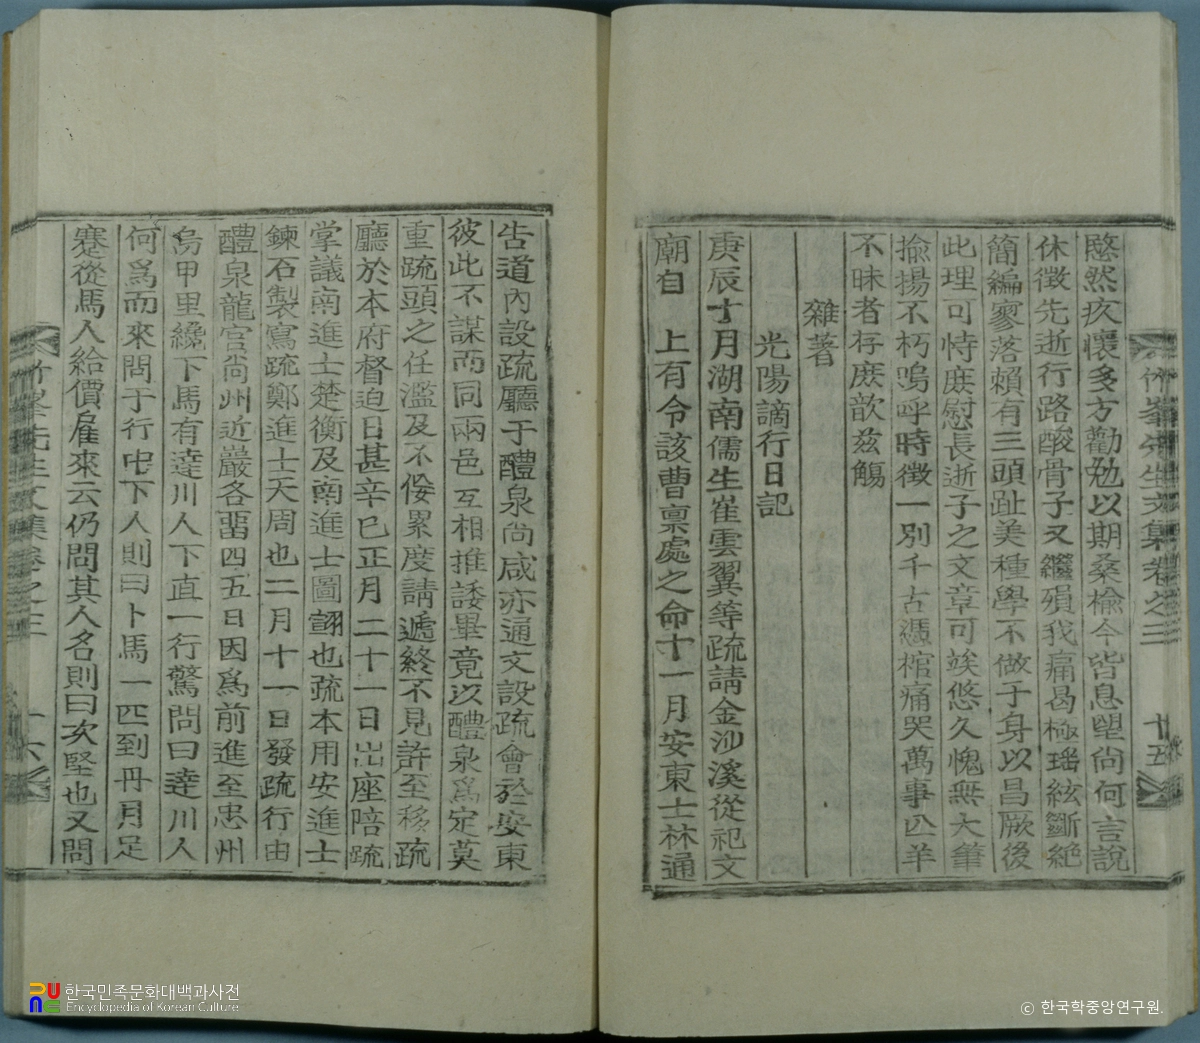 愍然疚懷多方勸勉以期桑楡今皆息望尙何言說
休徵先逝行路酸骨子又繼殞我痛曷極瑤絃斷絶
簡編寥落賴有三頭趾美種學不做于身以昌厥後
此理可恃庶慰長逝子之文章可竢悠久愧無大筆
揄揚不朽嗚呼時徵一別千古憑棺痛哭萬事亡羊
不昧者存庶歆玆觴
雜著
光陽謫行日記
庚辰十月湖南儒生崔雲翼等疏請金沙溪從祀文
廟自 上有令該曹禀處之命十一月安東士林通
先生文集卷之三 十五
告道內設疏廳于醴泉尙咸亦通文設疏會於安東
彼此不謀而同兩邑互相推諉畢竟以醴泉爲定莫
重疏頭之任濫及不佞累度請遞終不見許至移疏
廳於本府督迫日甚辛巳正月二十一日出座陪疏
掌議南進士楚衡及南進士圖翮也疏本用安進士
鍊石製寫疏鄭進士天周也二月十一日發疏行由
醴泉龍宮尙州近巖各留四五日因爲前進至忠州
烏甲里纔下馬有達川人下直一行驚問曰達川人
何爲而來問于行中下人則曰卜馬一匹到丹月足
蹇從馬人給價雇來云仍問其人名則曰次堅也又問
先生文集卷之三 十六
한국민족문화대백과사전
Encyclopedia of Korean Culture
ⓒ 한국학중앙연구원.